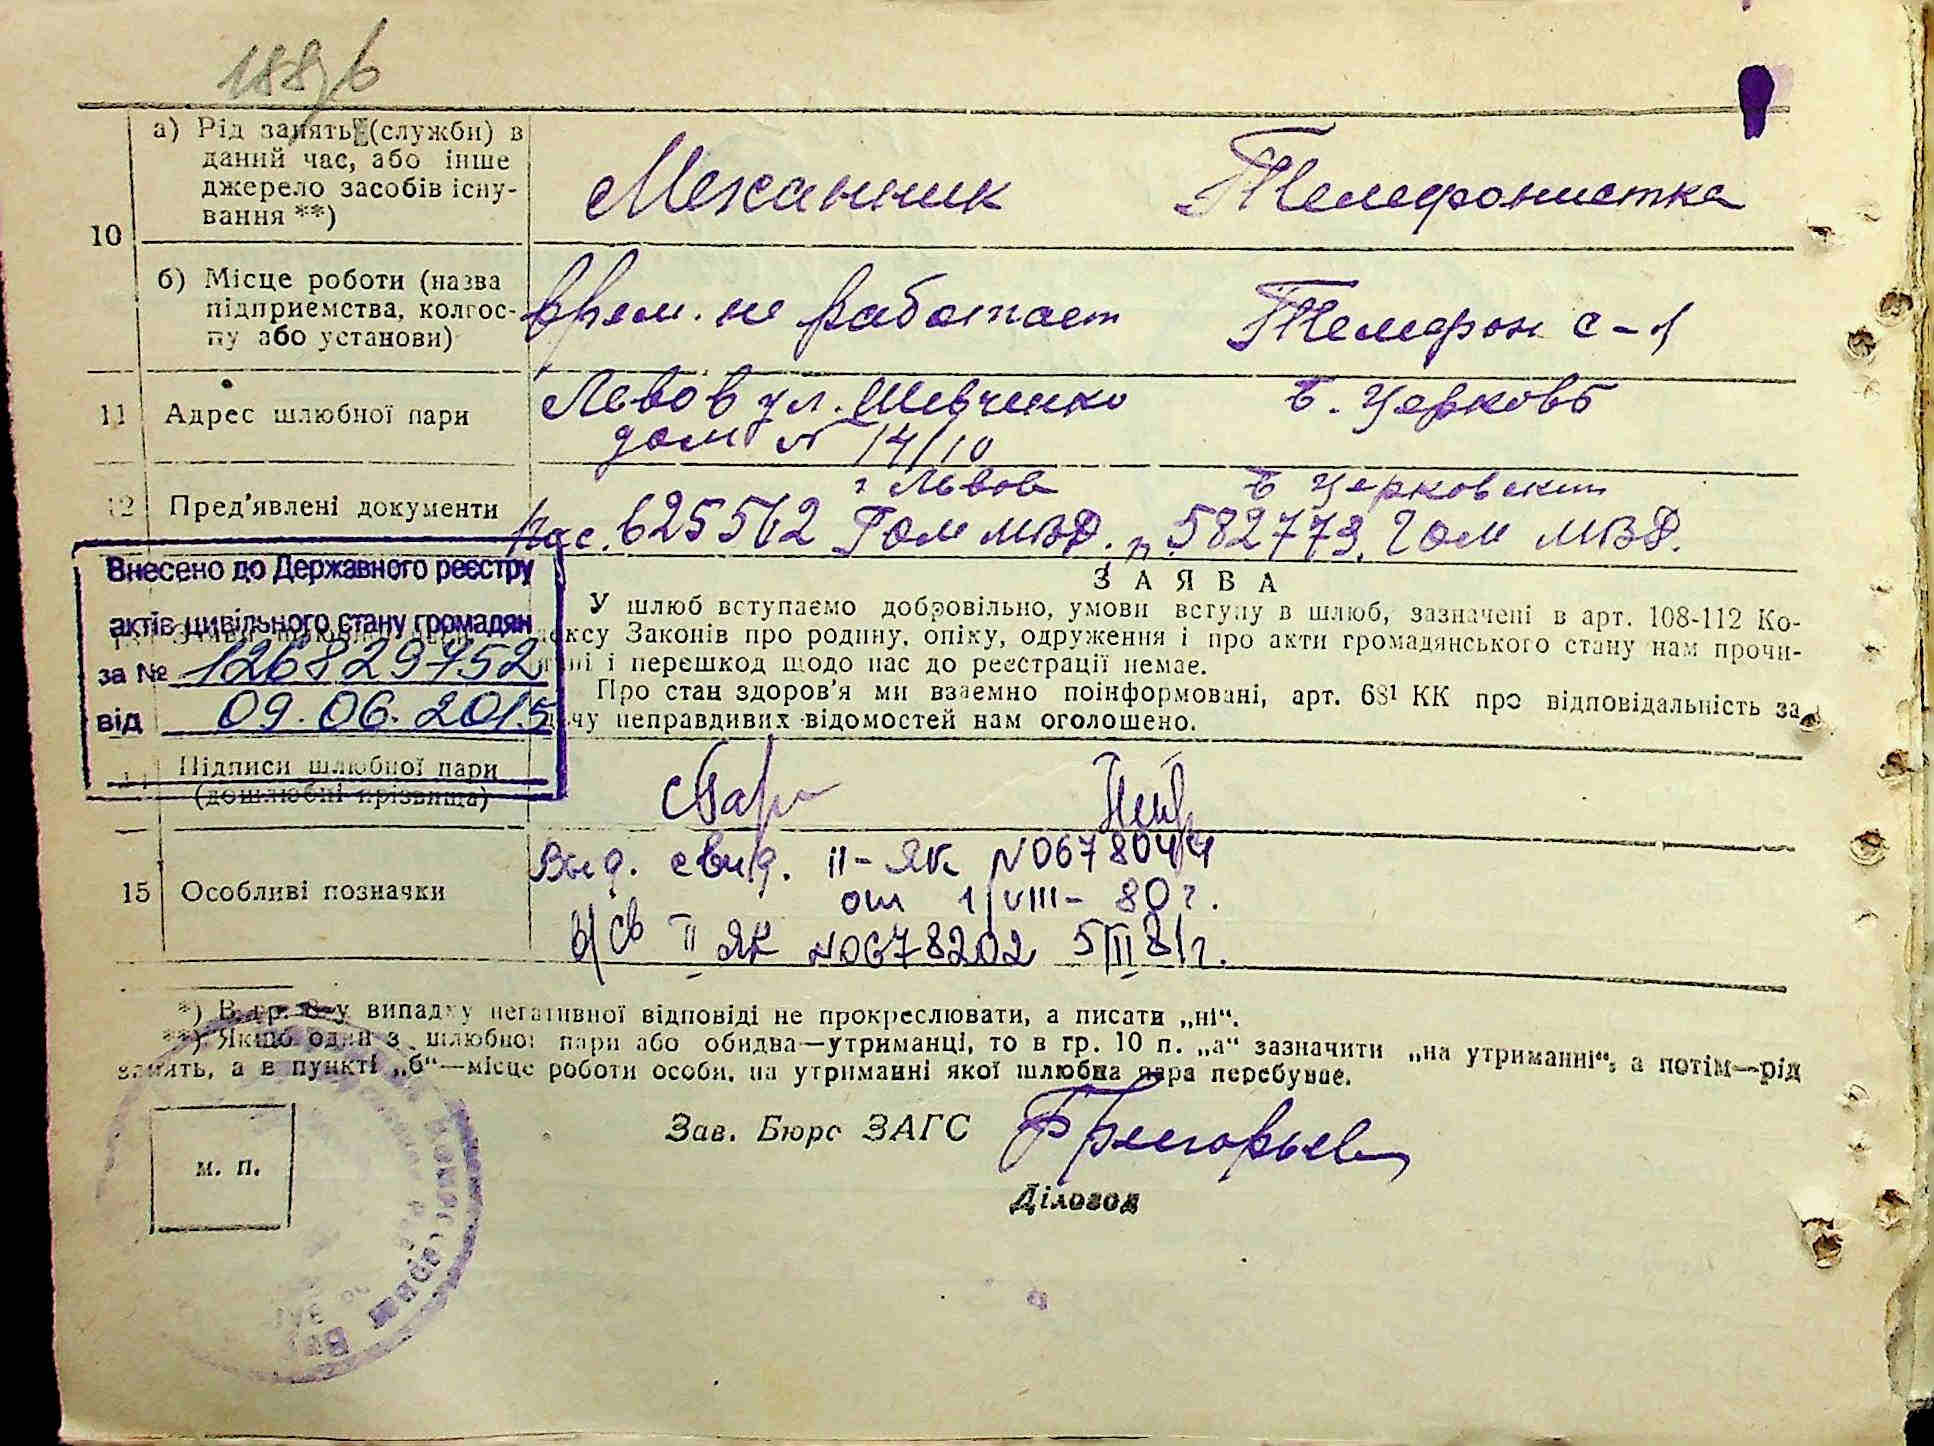 188/б
а) Рід занять (служби) в
даний час, або інше
джерело засобів існу-
вання **)
10
Механник Телефонистка
б) Місце роботи (назва
підприємства, колгос-
пу або установи)
врем. не работает Телефон с-1
11 Адрес шлюбної пари
Львов ул. Шевченко Б. Церковь
дом № 14/10
12 Пред'явлені документи
г Львов Б Церковский
Пас. 625562 ГОМ МВД. п. 582773. ГОМ МВД.
Внесено до Державного реєстру
актів цивільного стану громадян
за № 126829752
від 09.06.2015
ЗАЯВА
У шлюб вступаємо добровільно, умови вступу в шлюб, зазначені в арт. 108-112 Ко-
дексу Законів про родину, опіку, одруження і про акти громадянського стану нам прочи-
і перешкод щодо нас до реєстрації немає.
Про стан здоров'я ми взаємно поінформовані, арт. 68¹ КК про відповідальність за
неправдивих відомостей нам оголошено.
Підписи шлюбної пари
(дошлюбні прізвища)
15 Особливі позначки
Выд. свид. II-ЯК №0678044
от 1/VIII-80г.
в/св II ЯК №0678202 5/II 81г.
*) В гр. 8 у випадку негативної відповіді не прокреслювати, а писати „ні“.
**) Якщо один з шлюбної пари або обидва—утриманці, то в гр. 10 п. „а“ зазначити „на утриманні“, а потім—рід
занять, а в пункті „б“—місце роботи особи, на утриманні якої шлюбна пара перебуває.
Зав. Бюро ЗАГС
Діловод
м. п.